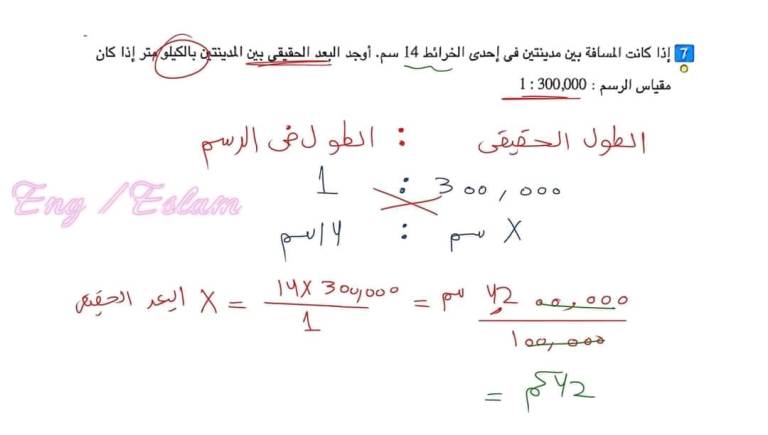 7 إذا كانت المسافة بين مدينتين في إحدى الخرائط 14 سم. أوجد البعد الحقيقي بين المدينتين بالكيلو متر إذا كان
مقياس الرسم : 300,000 : 1
الطول فى الرسم : الطول الحقيقى
1 : 300,000
14 سم : X سم
Eng /Eslam
البعد الحقيقى X = 14 X 300,000 / 1 = سم 42 00,000 / 100,000
= 42 كم